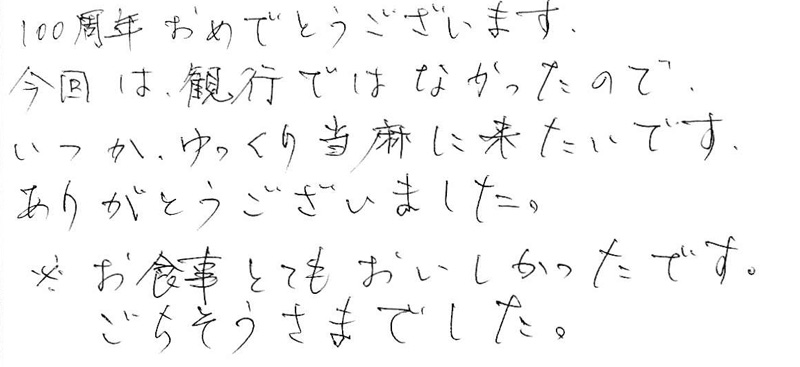 100周年おめでとうございます.
今回は、観行ではなかったので、
いつか、ゆっくり当麻に来たいです.
ありがとうございました。
※お食事とてもおいしかったです。
ごちそうさまでした。